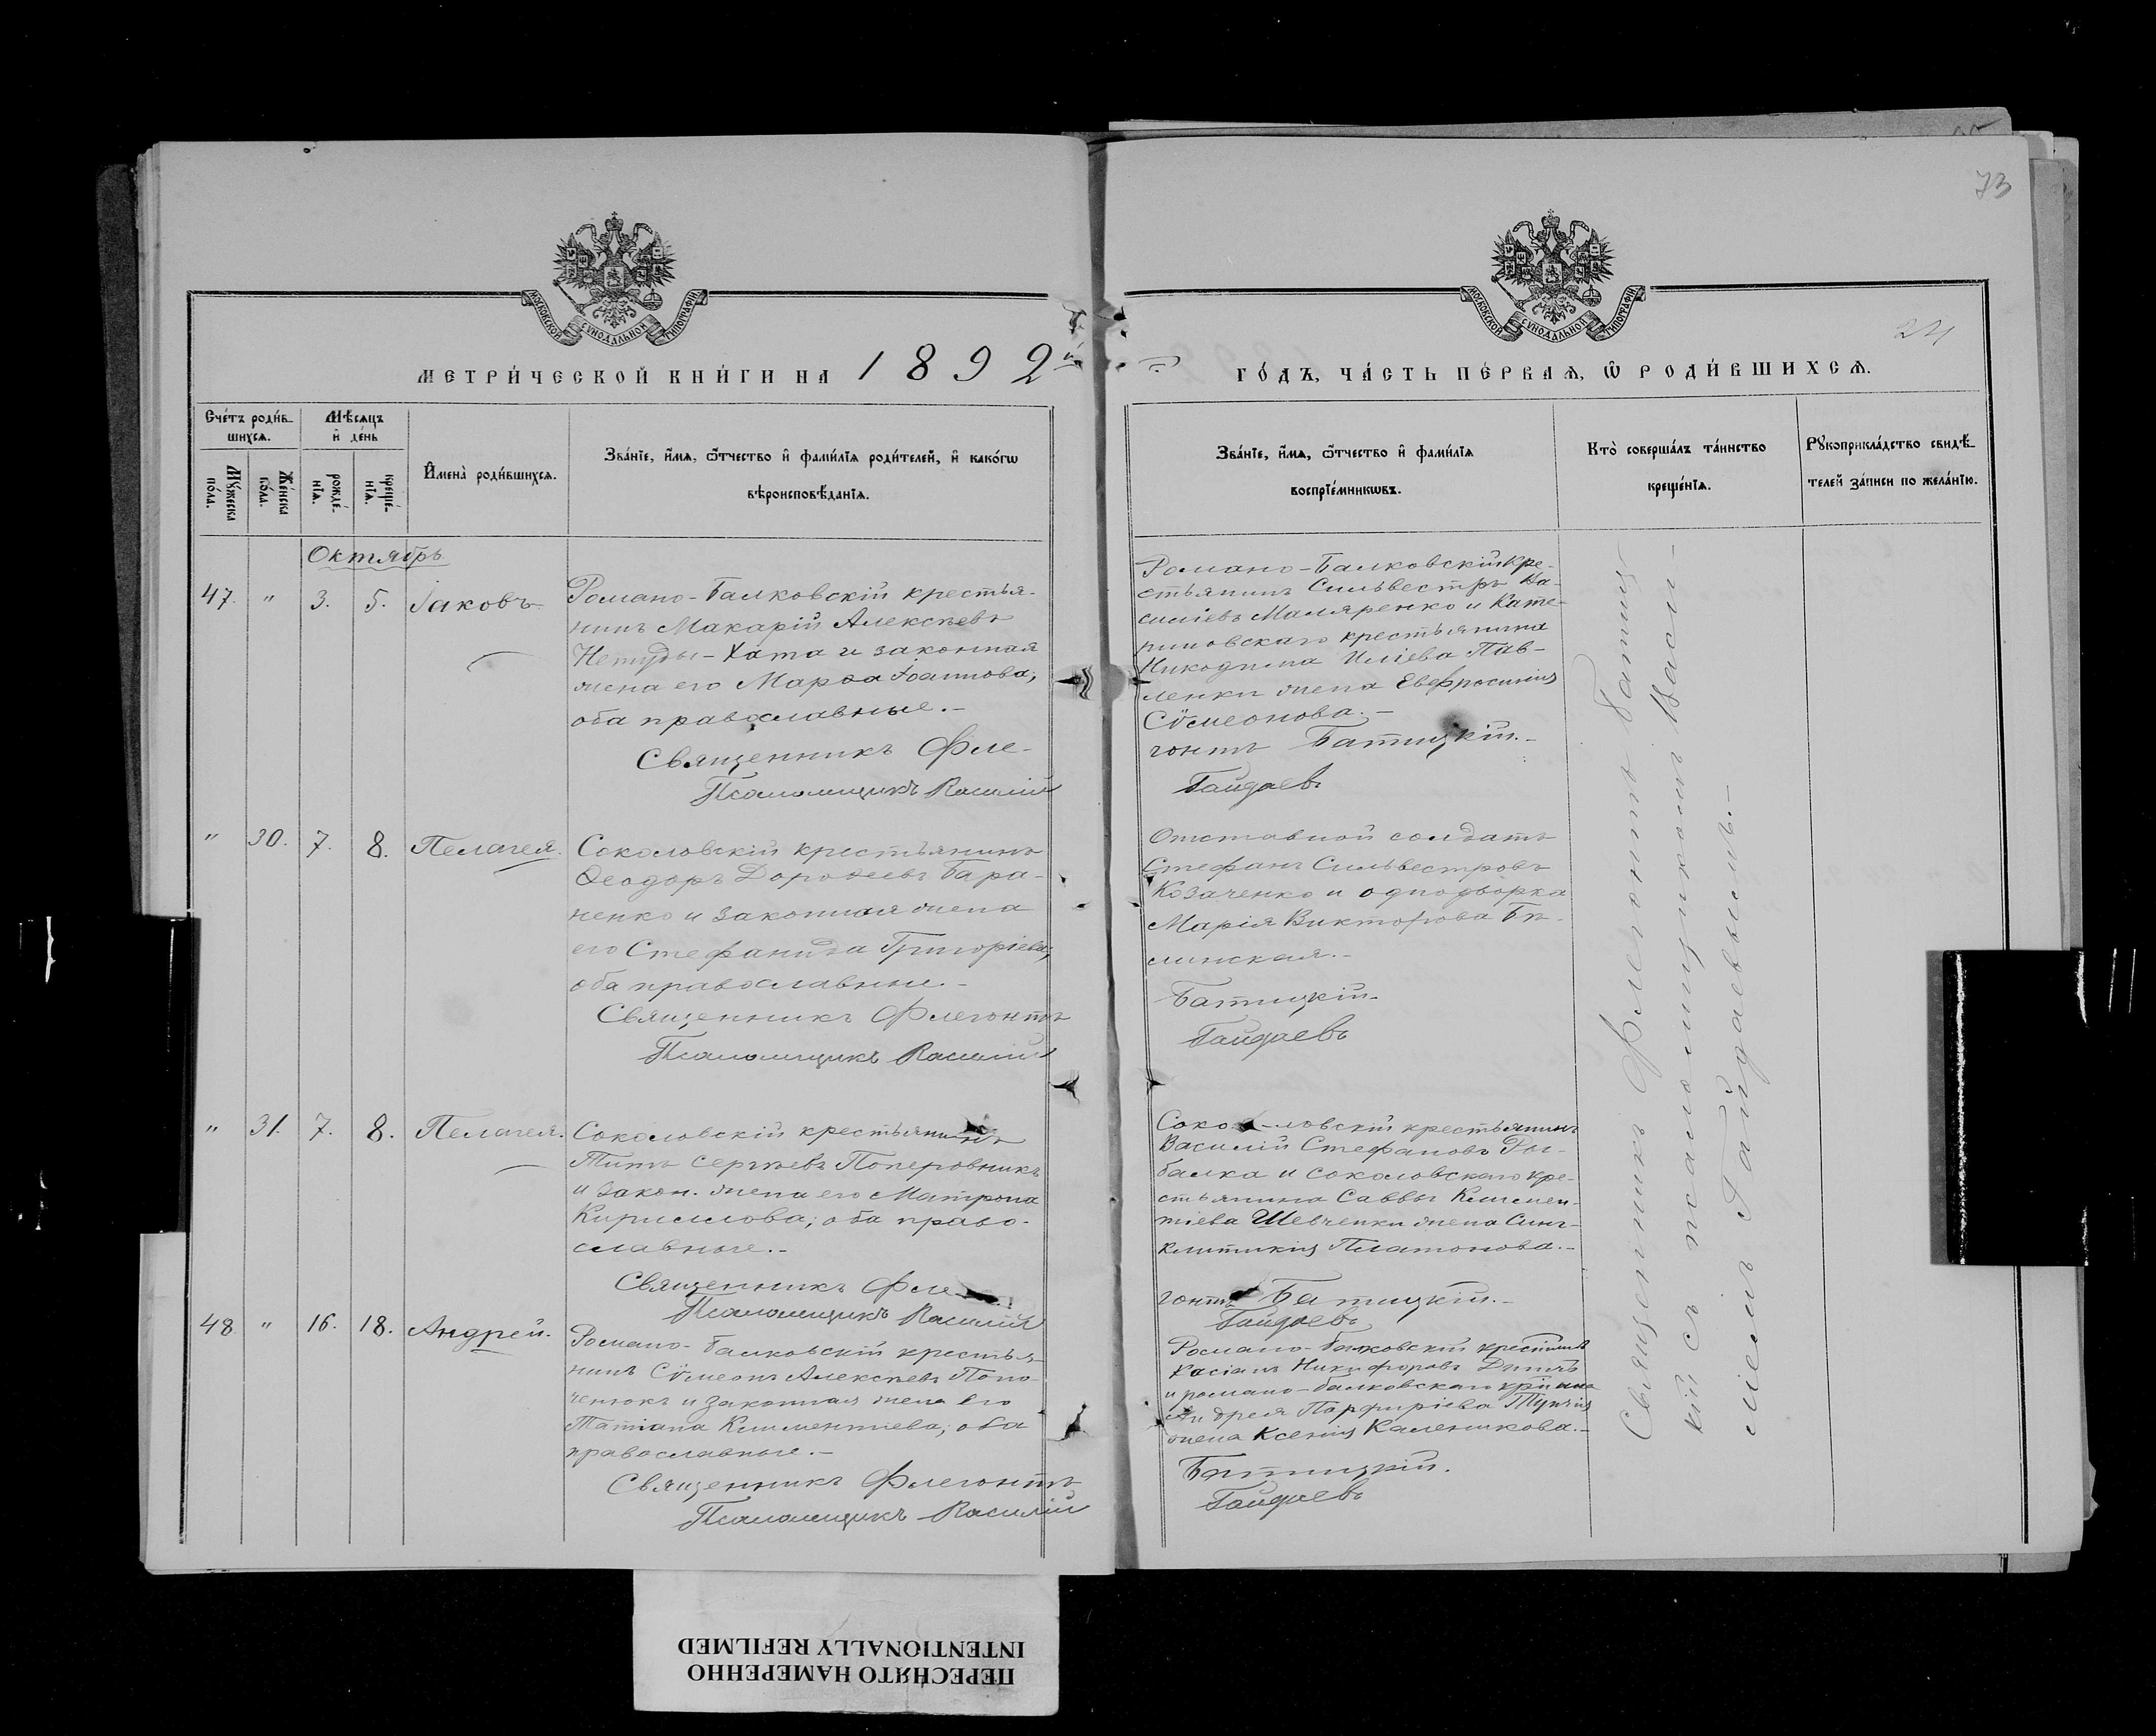 73
24
МОСКОВСКОЙ СѴНОДАЛЬНОЙ ТИПОГРАФІИ
МОСКОВСКОЙ СѴНОДАЛЬНОЙ ТИПОГРАФІИ
МЕТРИ́ЧЕСКОЙ КНИ́ГИ НА 1892й
ГО́ДЪ, ЧА́СТЬ ПЕ́РВАѦ, Ѡ҆ РОДИ́ВШИХСѦ.
Счетъ роди́в-
шихсѧ.
Мѣ́сѧцъ
и҆ де́нь
Мꙋ́жеска
по́ла.
Же́нска
по́ла.
рожде́-
нїѧ.
креще́-
нїѧ.
И҆мена̀ роди́вшихсѧ.
Зва́нїе, и҆́мѧ, ѻ҆́тчество и҆ фами́лїѧ роди́телей, и҆ како́гѡ
вѣроисповѣ́данїѧ.
Зва́нїе, и҆́мѧ, ѻ҆́тчество и҆ фами́лїѧ
воспрїе́мникѡвъ.
Кто̀ соверша́лъ та́инство
креще́нїѧ.
Рꙋкоприкла́дство свидѣ́-
телей за́писи по жела́нїю.
Октябрь
47. " 3. 5. Іаковъ
Романо-Балковскій крестья-
нинъ Макарій Алексѣевъ
Нетуды-Хата и законная
жена его Марѳа Іоаннова,
оба православные.-
Священникъ Фле-
Псаломщикъ Василій
Романо-Балковскій кре-
стьянинъ Сильвестръ Ва-
силіевъ Маляренко и Кате-
риновскаго крестьянина
Никодима Иліева Пав-
ленки жена Евфросинія
Сѵмеонова.-
гонтъ Батицкій.-
Гайдаевъ
" 30. 7. 8. Пелагея.
Соколовскій крестьянинъ
Ѳеодоръ Дороѳеевъ Бара-
ненко и законная жена
его Стефанида Григоріева;
оба православные.-
Священникъ Флегонтъ
Псаломщикъ Василій
Отставной солдатъ
Стефанъ Сильвестровъ
Козаченко и однодворка
Марія Викторова Бѣ-
линская.-
Батицкій.
Гайдаевъ
" 31. 7. 8. Пелагея.
Соколовскій крестьянинъ
Титъ Сергѣевъ Поперовникъ
и закон. жена его Матрона
Кириллова; оба право-
славные.-
Священникъ Фле
Псаломщикъ Василій
Соко-ловскій крестьянинъ
Василій Стефановъ Ры-
балка и соколовскаго кре-
стьянина Саввы Климен-
тіева Шевченки жена Синг-
клитикія Платонова.-
гонтъ Батицкій.-
Гайдаевъ
48 " 16. 18. Андрей.
Романо-Балковскій крестья-
нинъ Сѵмеонъ Алексѣевъ Попо-
ченюкъ и законная жена его
Татіана Климентіева; оба
православные.-
Священникъ Флегонтъ
Псаломщикъ Василій
Романо-Балковскій
Касіанъ Никифоровъ
и романо-балковскаго
Андрея Порфиріева
жена Ксенія Каленикова.-
Батицкій.
Гайдаевъ
Священникъ Флегонтъ Батиц-
кій съ псаломщикомъ Васи-
ліемъ Гайдаевымъ.-
ПЕРЕСНЯТО НАМЕРЕННО
INTENTIONALLY REFILMED